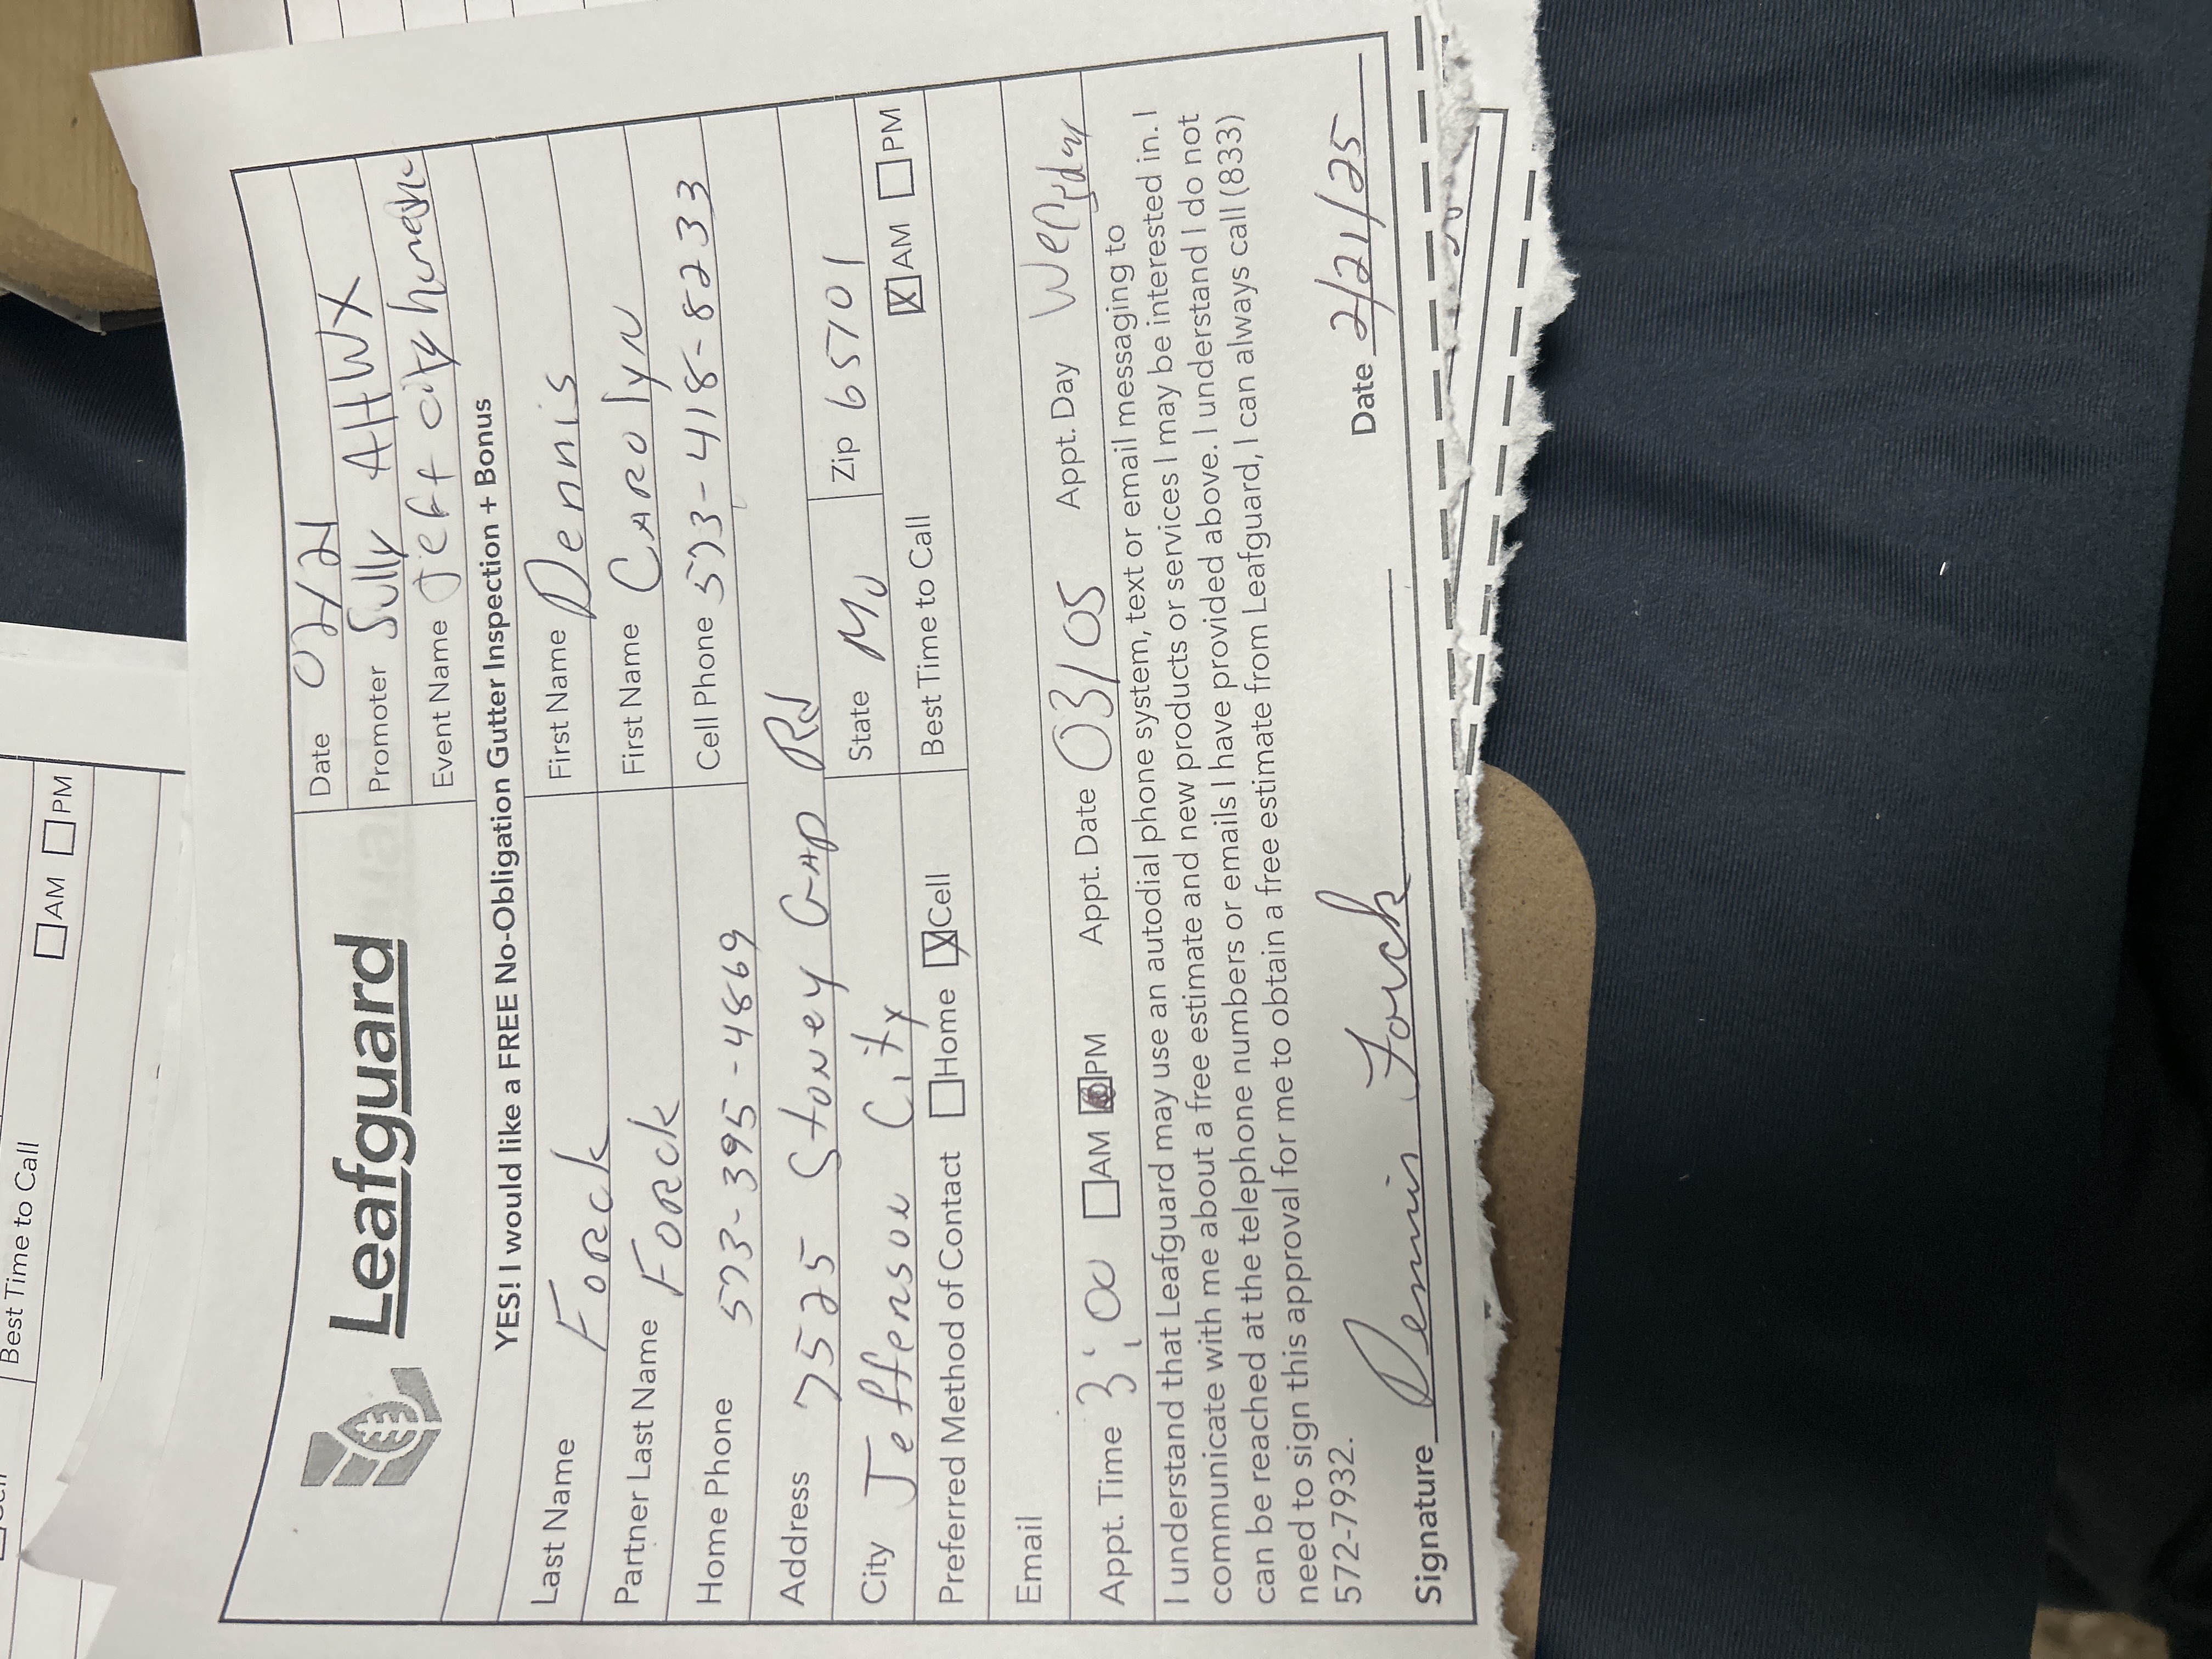 Best Time to Call AM PM
Leafguard
Date 02/21
Promoter Sully AHWX
Event Name Jeff city
YES! I would like a FREE No-Obligation Gutter Inspection + Bonus
Last Name Forck First Name Dennis
Partner Last Name Forck First Name Carolyn
Home Phone 573-395-4869 Cell Phone 573-418-8233
Address 7525 Stoney Gap Rd
City Jefferson City State Mo Zip 65101
Preferred Method of Contact Home X Cell Best Time to Call X AM PM
Email
Appt. Time 3:00 AM PM Appt. Date 03/05 Appt. Day
I understand that Leafguard may use an autodial phone system, text or email messaging to
communicate with me about a free estimate and new products or services I may be interested in. I
can be reached at the telephone numbers or emails I have provided above. I understand I do not
need to sign this approval for me to obtain a free estimate from Leafguard, I can always call (833)
572-7932.
Signature Dennis Forck Date 2/21/25